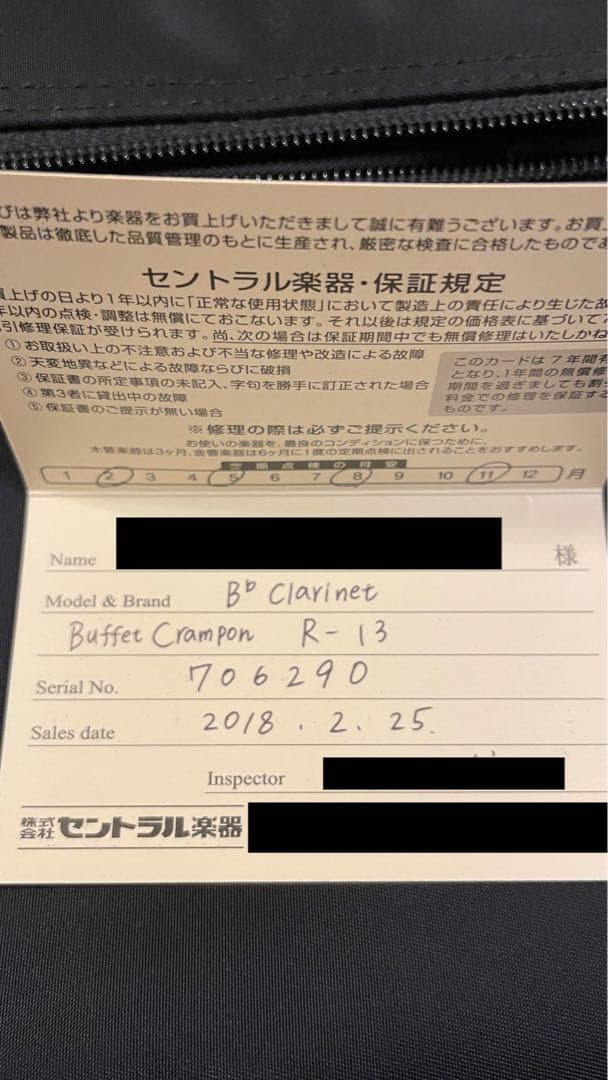 びは弊社より楽器をお買上げいただきまして誠に有難うございます。お買
製品は徹底した品質管理のもとに生産され、厳密な検査に合格したものであ
セントラル楽器・保証規定
上げの日より1年以内に「正常な使用状態」において製造上の責任により生じた故
年以内の点検・調整は無償にておこないます。それ以後は規定の価格表に基づいて
引修理保証が受けられます。尚、次の場合は保証期間中でも無償修理はいたしかね
①お取扱い上の不注意および不当な修理や改造による故障
②天変地異などによる故障ならびに破損
③保証書の所定事項の未記入、字句を勝手に訂正された場合
④第3者に貸出中の故障
⑤保証書のご提示が無い場合
このカードは7年間有
となり、1年間の無償修
期間を過ぎましても割
料金での修理を保証する
ものです。
※修理の際は必ずご提示ください。
お使いの楽器を、最良のコンディションに保つために、
木管楽器は3ヶ月、金管楽器は6ヶ月に1度の定期点検に出されることをおすすめします。
定期点検の目安
1 2 3 4 5 6 7 8 9 10 11 12 月
Name 様
Model & Brand B♭ Clarinet
Buffet Crampon R-13
Serial No. 706290
Sales date 2018. 2. 25.
Inspector
株式会社 セントラル楽器